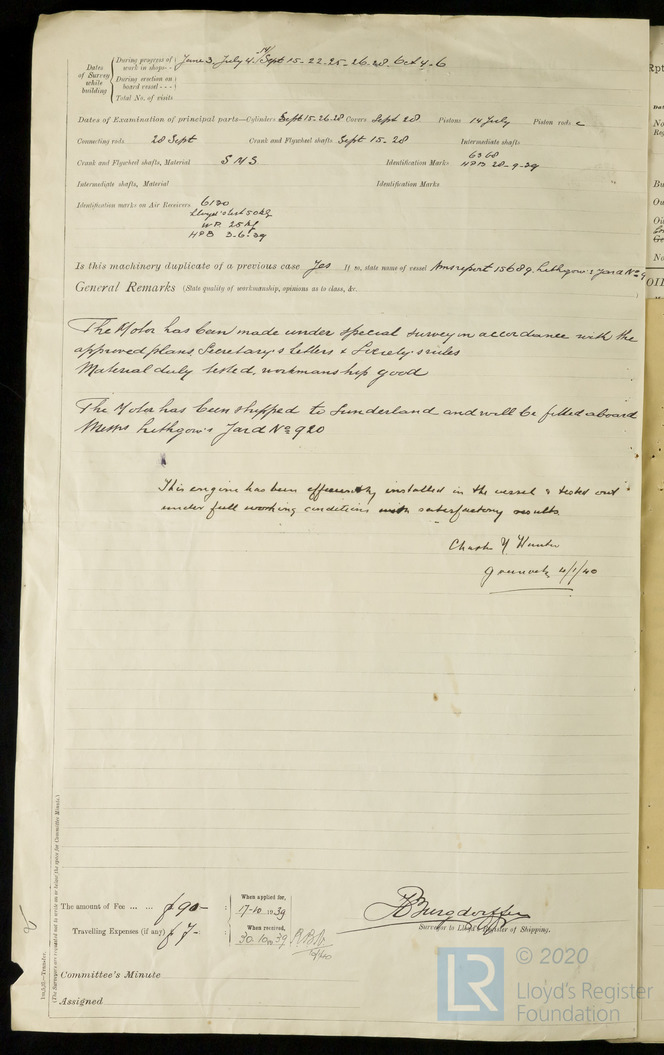 Dates of Survey while building
During progress of work in shops - - June 3, July 4, 14/ Sept 15-22-25-26-28. Oct 4-6
During erection on board vessel - - -
Total No. of visits
Dates of Examination of principal parts—Cylinders Sept 15-26-28 Covers Sept 28 Pistons 14 July Piston rods
Connecting rods 28 Sept Crank and Flywheel shafts Sept 15-28 Intermediate shafts
Crank and Flywheel shafts, Material S M S Identification Marks 6368
HPB 28-9-39
Intermediate shafts, Material Identification Marks
Identification marks on Air Receivers 6130
Lloyd's test 50 kg
W.P. 25 kg
HPB 3-6-39
Is this machinery duplicate of a previous case Yes If so, state name of vessel Ams report 15689. Lithgow's Yard No
General Remarks (State quality of workmanship, opinions as to class, &c.
The Motor has been made under special survey in accordance with the
approved plans, Secretary's Letters & Society's rules
Material duly tested, workmanship good
The Motor has been shipped to Sunderland and will be fitted aboard
Messrs Lithgow's Yard No 920
This engine has been efficiently installed in the vessel & tested out
under full working conditions with satisfactory results
Hunter
Greenock 4/1/40
The amount of Fee ... ... £ 90-
Travelling Expenses (if any) £ 7-
When applied for,
17-10 1939
When received,
30.10.39
Burgdorffer
Surveyor to Lloyd's Register of Shipping.
Committee's Minute
Assigned
(The Surveyors are requested not to write on or below the space for Committee Minute.)
© 2020
LR
Lloyd's Register
Foundation
Rpt
OIL